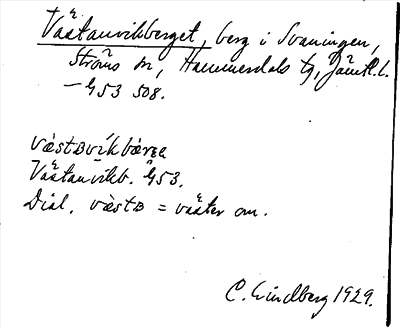 Västanvikberget, berg i Svaningen,
Ströms sn, Hammerdals tg, Jämtl. l.
– G53 508.
västʙvíkbärɛa
Västanvikb. G53.
Dial. västʙ = väster om.
C. Lindberg 1929.